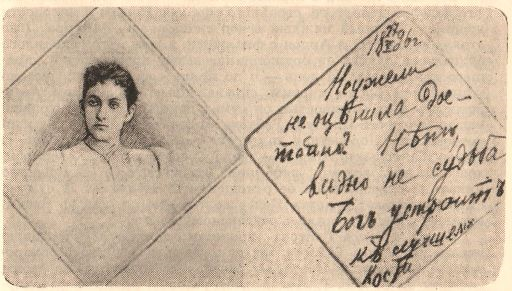 18 96г
Неужели
не оцѣнила дос-
тойно? Нѣтъ,
видно не судьба
Богъ устроитъ
къ лучшему
Костя